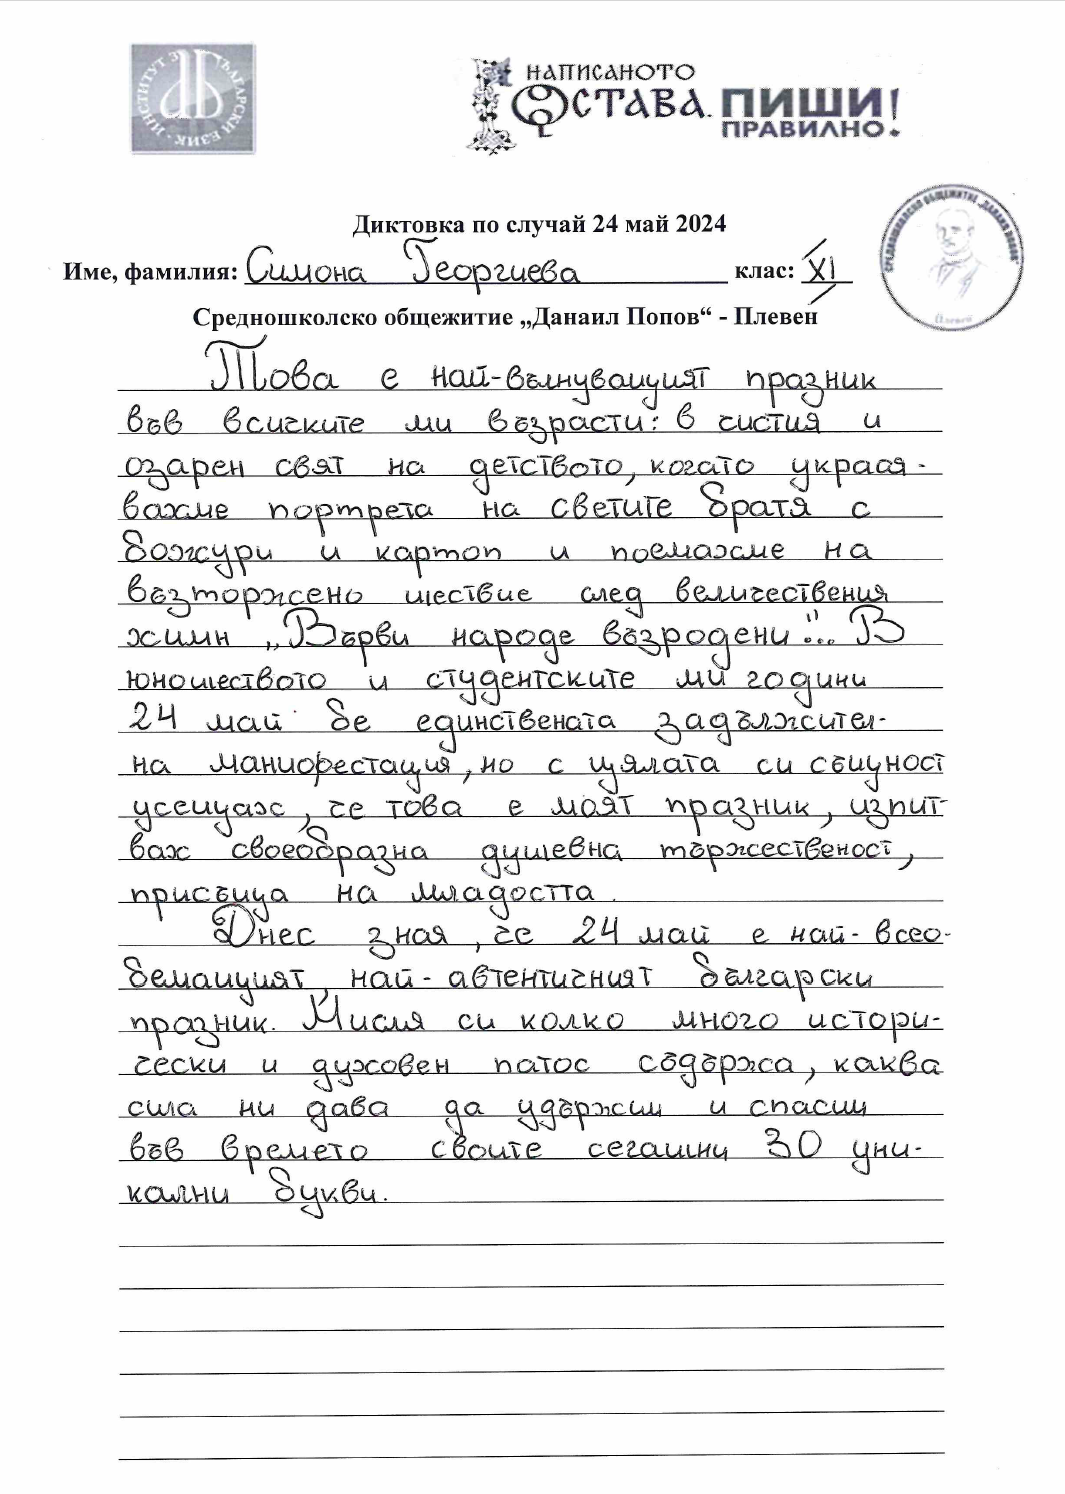 ИНСТИТУТ ЗА БЪЛГАРСКИ ЕЗИК
НАПИСАНОТО
ОСТАВА. ПИШИ
ПРАВИЛНО!
СРЕДНОШКОЛСКО ОБЩЕЖИТИЕ „ДАНАИЛ ПОПОВ“
Плевен
Диктовка по случай 24 май 2024
Име, фамилия: Симона Георгиева клас: XI
Средношколско общежитие „Данаил Попов“ - Плевен
Това е най-вълнуващият празник
във всичките ми възрасти: в чистия и
озарен свят на детството, когато украся-
вахме портрета на светите братя с
божури и картоп и поемахме на
възторжено шествие след величествения
химн „Върви народе възродени“... В
юношеството и студентските ми години
24 май бе единствената задължител-
на манифестация, но с цялата си същност
усещах, че това е моят празник, изпит-
вах своеобразна душевна тържественост,
присъща на младостта.
Днес зная, че 24 май е най-всео-
бемащият, най-автентичният български
празник. Мисля си колко много истори-
чески и духовен патос съдържа, каква
сила ни дава да удържим и спасим
във времето своите сегашни 30 уни-
кални букви.